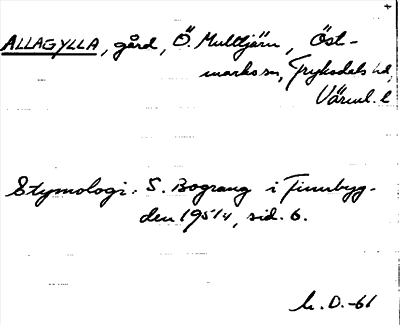 ALLAGYLLA, gård, Ö. Multjärn, Öst-
marks sn, Fryksdals hd,
Värml. l
Etymologi: S. Bograng i Finnbyg-
den 1951/4, sid. 6.
h. D. -61